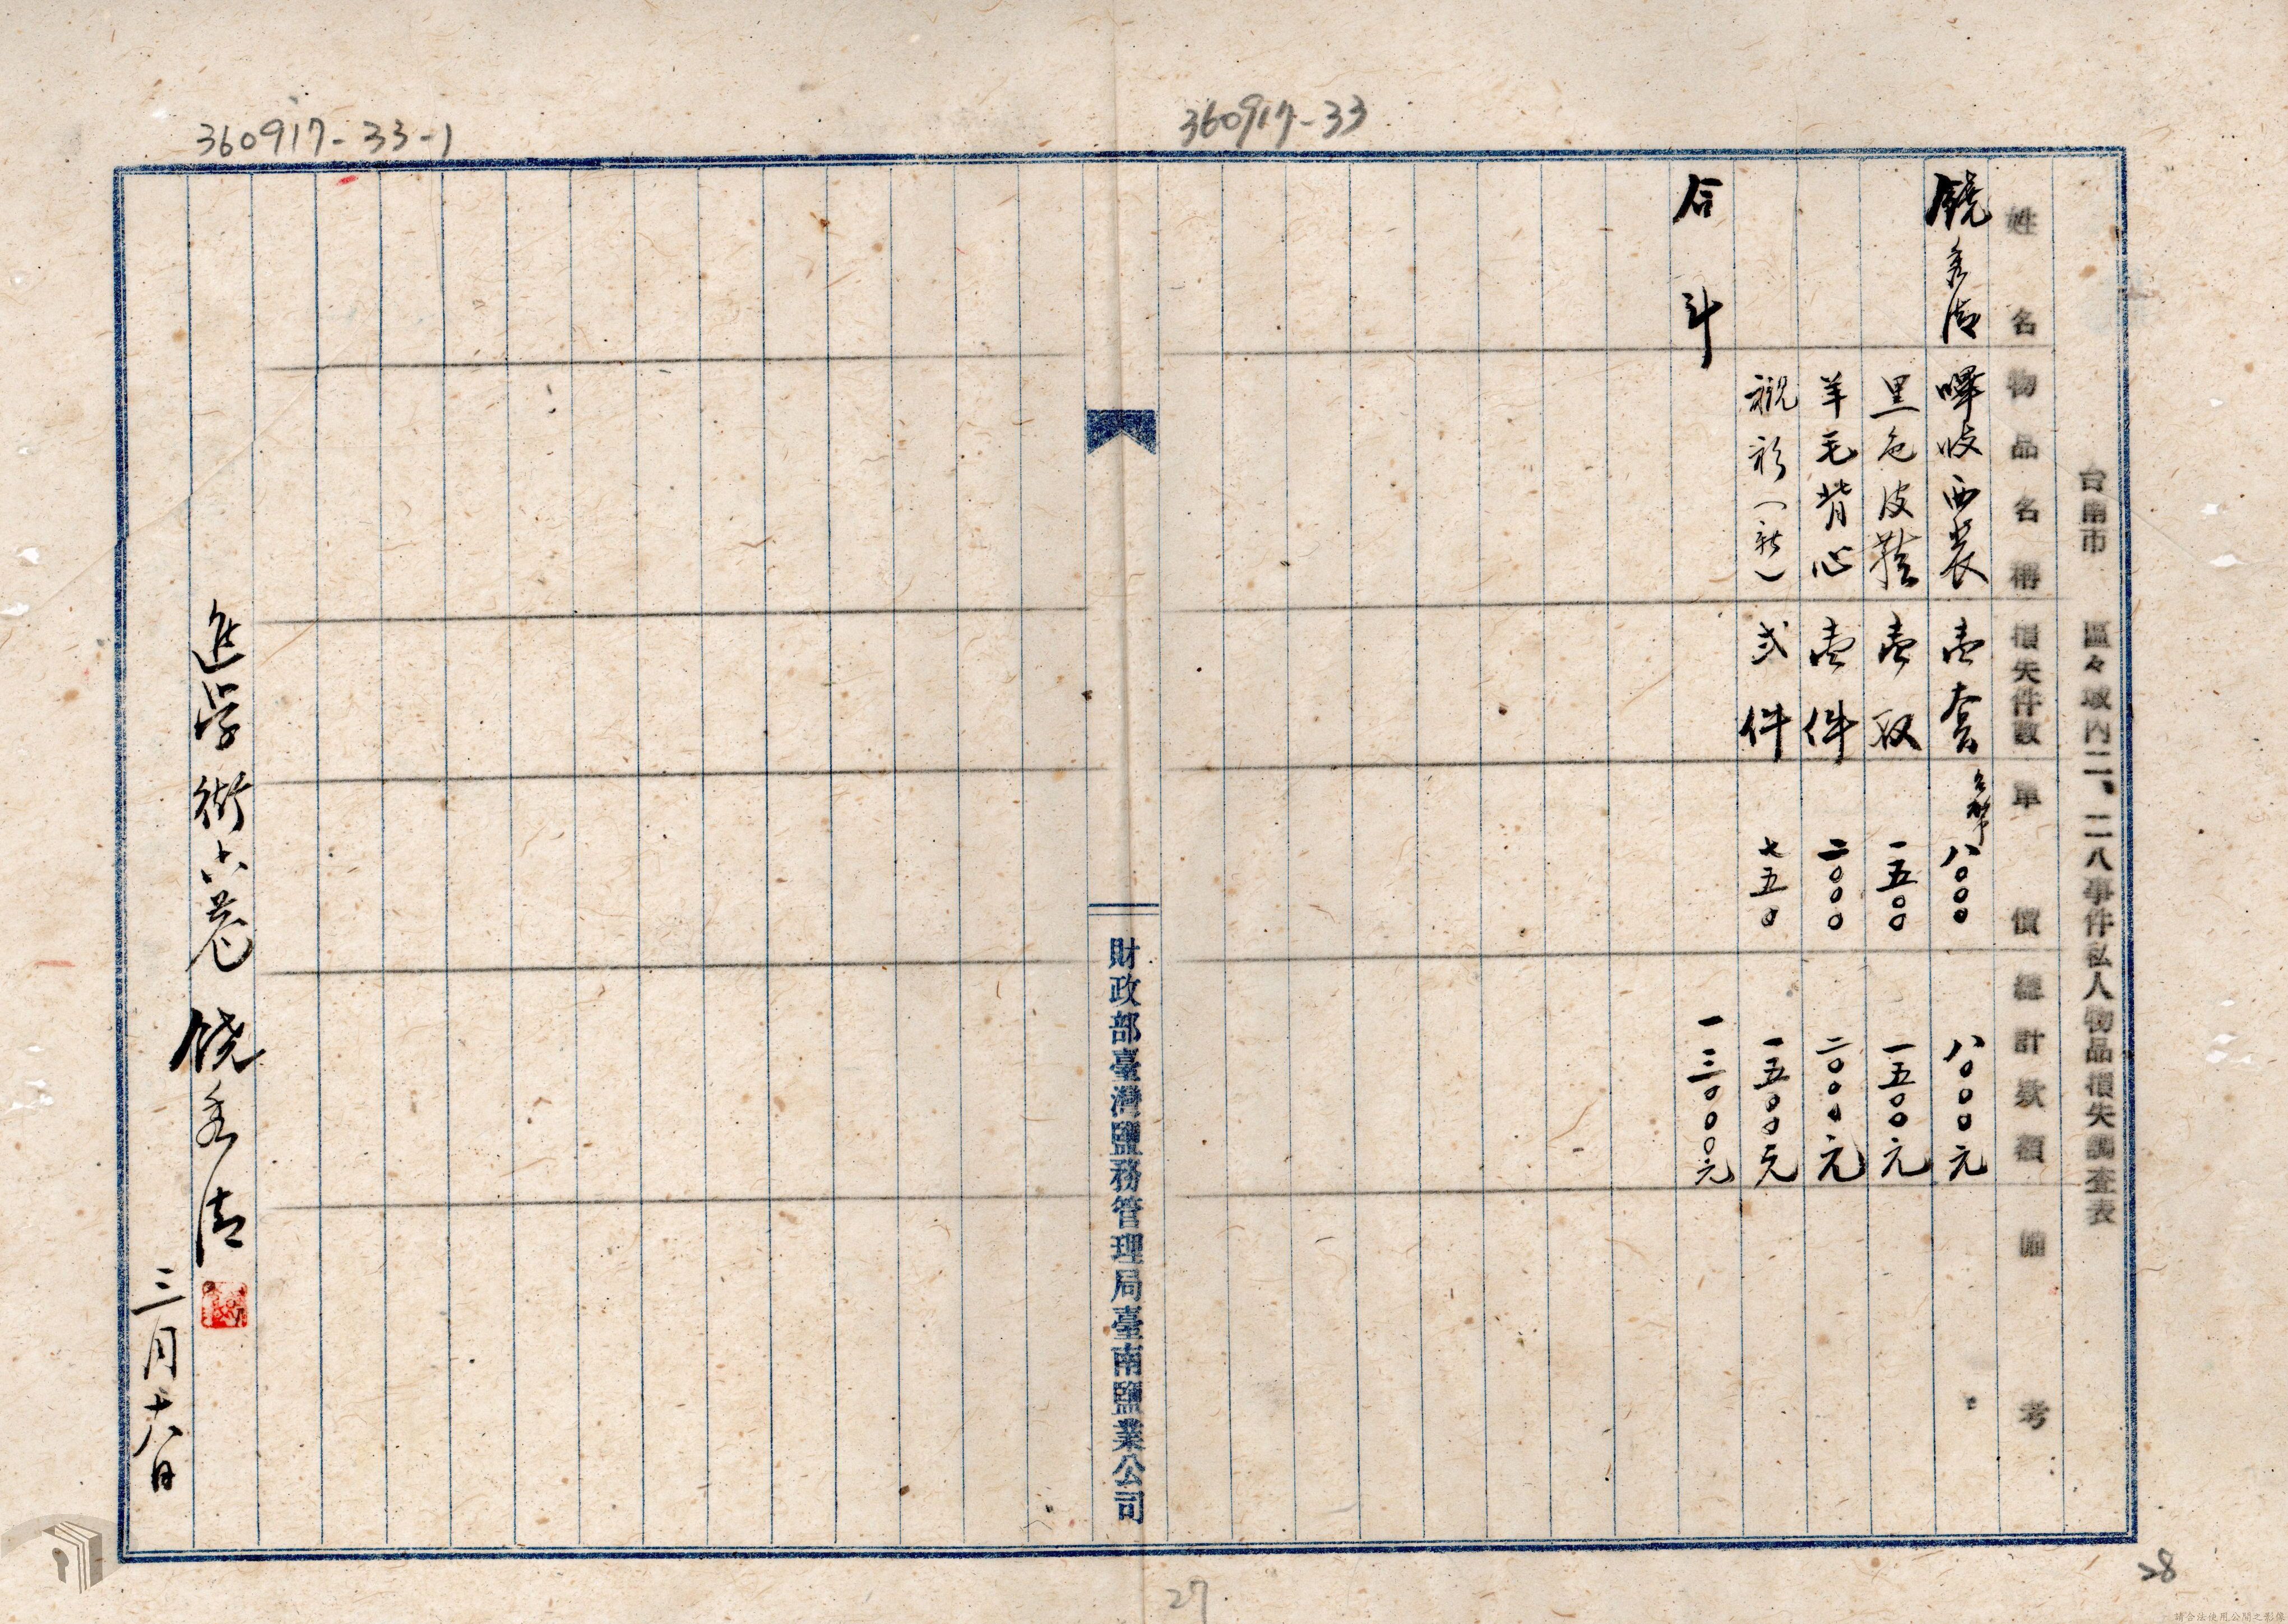 360917-33
360917-33-1
台南市 區々域內二、二八事件私人物品損失調查表
姓名 物品名稱 損失件數 單價 總計款額 備考
饒秀清 嗶吱西裝 壹套 台幣八〇〇〇 八〇〇〇元
黑色皮鞋 壹双 一五〇〇 一五〇〇元
羊毛背心 壹件 二〇〇〇 二〇〇〇元
襯衫(新) 弍件 七五〇 一五〇〇元
合計 一三〇〇〇元
財政部臺灣鹽務管理局臺南鹽業公司
進學街六巷 饒秀清
三月十八日
27
28
請合法使用公開之影像